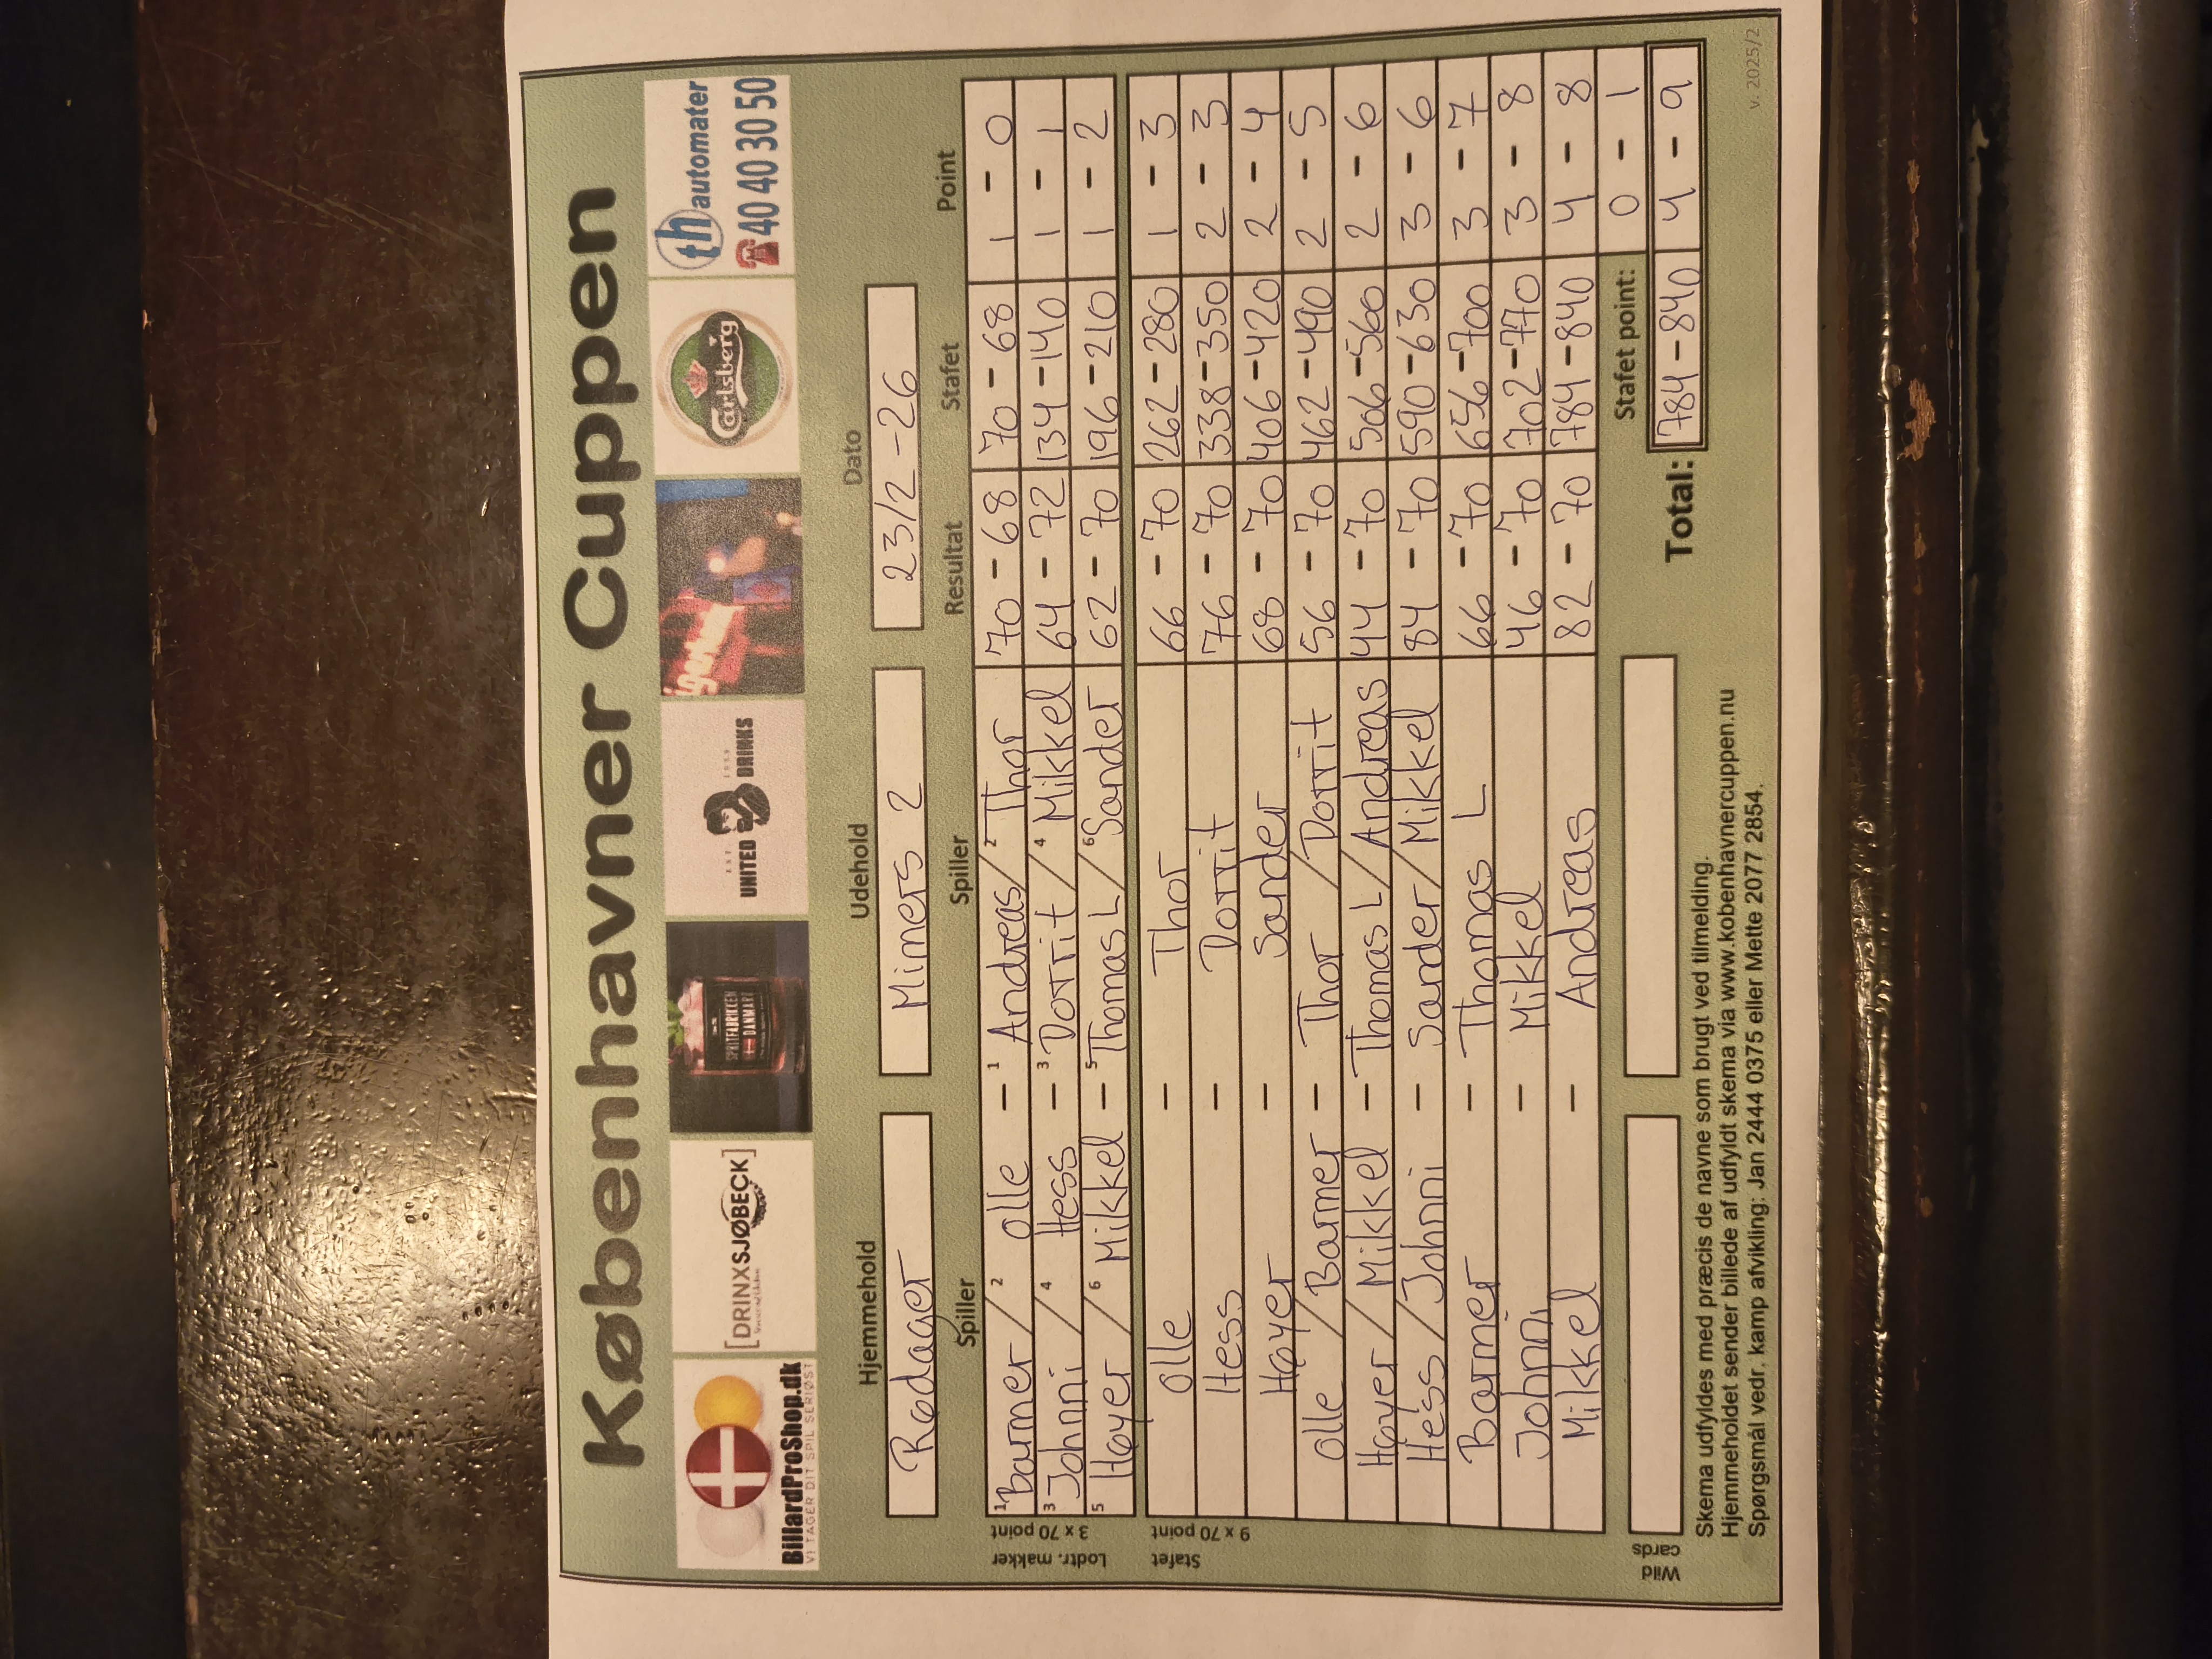 Københavner Cuppen
BillardProShop.dk
VI TAGER DIT SPIL SERIØST
[DRINXSJØBECK]
SPRITFABRIKKEN
DANMARK
UNITED DRINKS
Carlsberg
th automater
40 40 30 50
Hjemmehold Udehold Dato
Rødager Mimers 2 23/2-26
Spiller Spiller Resultat Stafet Point
Lodtr. makker
3 x 70 point
1 Barmer / 2 Olle - 1 Andreas / 2 Thor 70 - 68 70 - 68 1 - 0
3 Johnni / 4 Hess - 3 Dorrit / 4 Mikkel 64 - 72 134 - 140 1 - 1
5 Høyer / 6 Mikkel - 5 Thomas L / 6 Sander 62 - 70 196 - 210 1 - 2
Stafet
9 x 70 point
Olle - Thor 66 - 70 262 - 280 1 - 3
Hess - Dorrit 76 - 70 338 - 350 2 - 3
Høyer - Sander 68 - 70 406 - 420 2 - 4
Olle / Barmer - Thor / Dorrit 56 - 70 462 - 490 2 - 5
Høyer / Mikkel - Thomas L / Andreas 44 - 70 506 - 560 2 - 6
Hess / Johnni - Sander / Mikkel 84 - 70 590 - 630 3 - 6
Barmer - Thomas L 66 - 70 656 - 700 3 - 7
Johnni - Mikkel 46 - 70 702 - 770 3 - 8
Mikkel - Andreas 82 - 70 784 - 840 4 - 8
Wild cards
Stafet point: 0 - 1
Total: 784 - 840 4 - 9
Skema udfyldes med præcis de navne som brugt ved tilmelding.
Hjemmeholdet sender billede af udfyldt skema via www.kobenhavnercuppen.nu
Spørgsmål vedr. kamp afvikling: Jan 2444 0375 eller Mette 2077 2854.
v. 2025/2